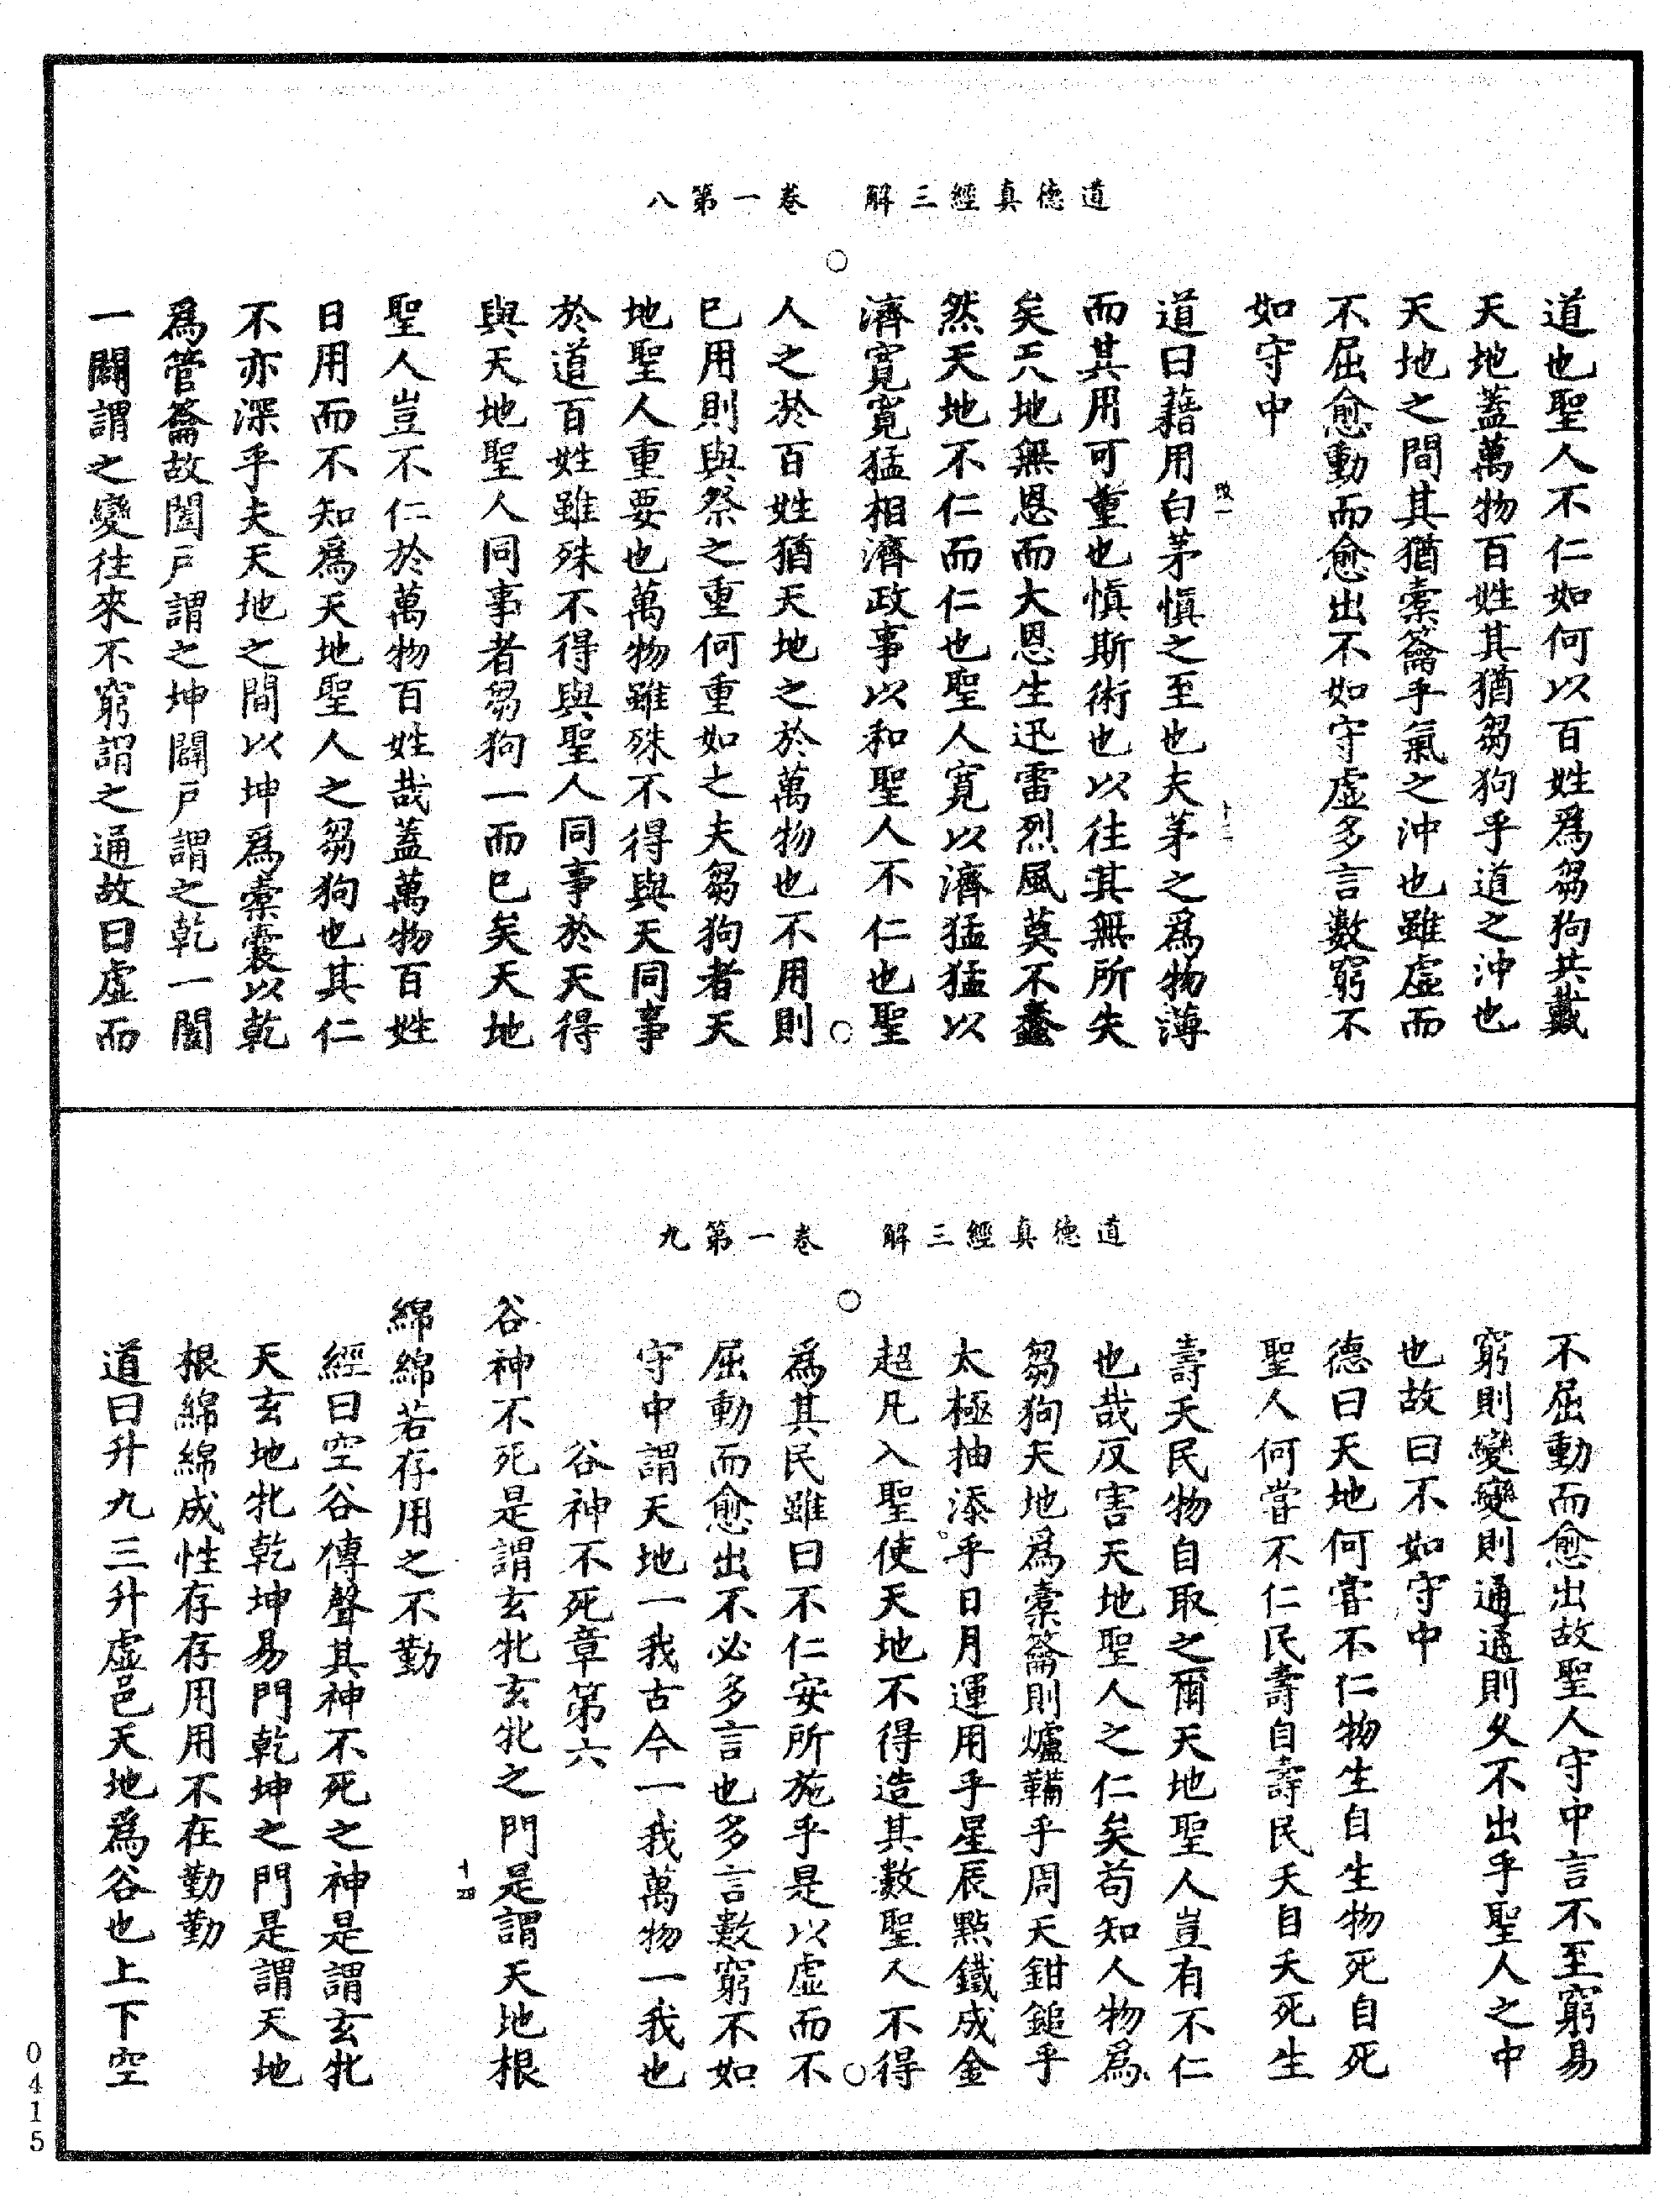 道德真經三解　卷一第八
道也聖人不仁如何以百姓爲芻狗共戴
天地蓋萬物百姓其猶芻狗乎道之沖也
天地之間其猶橐籥乎氣之沖也雖虛而
不屈愈動而愈出不如守虛多言數窮不
如守中
道曰藉用白茅慎之至也夫茅之爲物薄
而其用可重也慎斯術也以往其無所失
矣天地無恩而大恩生迅雷烈風莫不蠢
然天地不仁而仁也聖人寬以濟猛猛以
濟寬寬猛相濟政事以和聖人不仁也聖
人之於百姓猶天地之於萬物也不用則
已用則與祭之重何重如之夫芻狗者天
地聖人重要也萬物雖殊不得與天同事
於道百姓雖殊不得與聖人同事於天得
與天地聖人同事者芻狗一而已矣天地
聖人豈不仁於萬物百姓哉蓋萬物百姓
日用而不知爲天地聖人之芻狗也其仁
不亦深乎夫天地之間以坤爲橐囊以乾
爲管籥故闔戶謂之坤闢戶謂之乾一闔
一闢謂之變往來不窮謂之通故曰虛而
道德真經三解　卷一第九
不屈動而愈出故聖人守中言不至窮易
窮則變變則通通則久不出乎聖人之中
也故曰不如守中
德曰天地何嘗不仁物生自生物死自死
聖人何嘗不仁民壽自壽民夭自夭死生
壽夭民物自取之爾天地聖人豈有不仁
也哉反害天地聖人之仁矣苟知人物爲
芻狗天地爲橐籥則爐鞴乎周天鉗鎚乎
太極抽添乎日月運用乎星辰點鐵成金
超凡入聖使天地不得造其數聖人不得
爲其民雖曰不仁安所施乎是以虛而不
屈動而愈出不必多言也多言數窮不如
守中謂天地一我古今一我萬物一我也
谷神不死章第六
谷神不死是謂玄牝玄牝之門是謂天地根
十四
綿綿若存用之不勤
經曰空谷傳聲其神不死之神是謂玄牝
天玄地牝乾坤易門乾坤之門是謂天地
根綿綿成性存存用用不在勤勤
道曰升九三升虛邑天地爲谷也上下空
0415